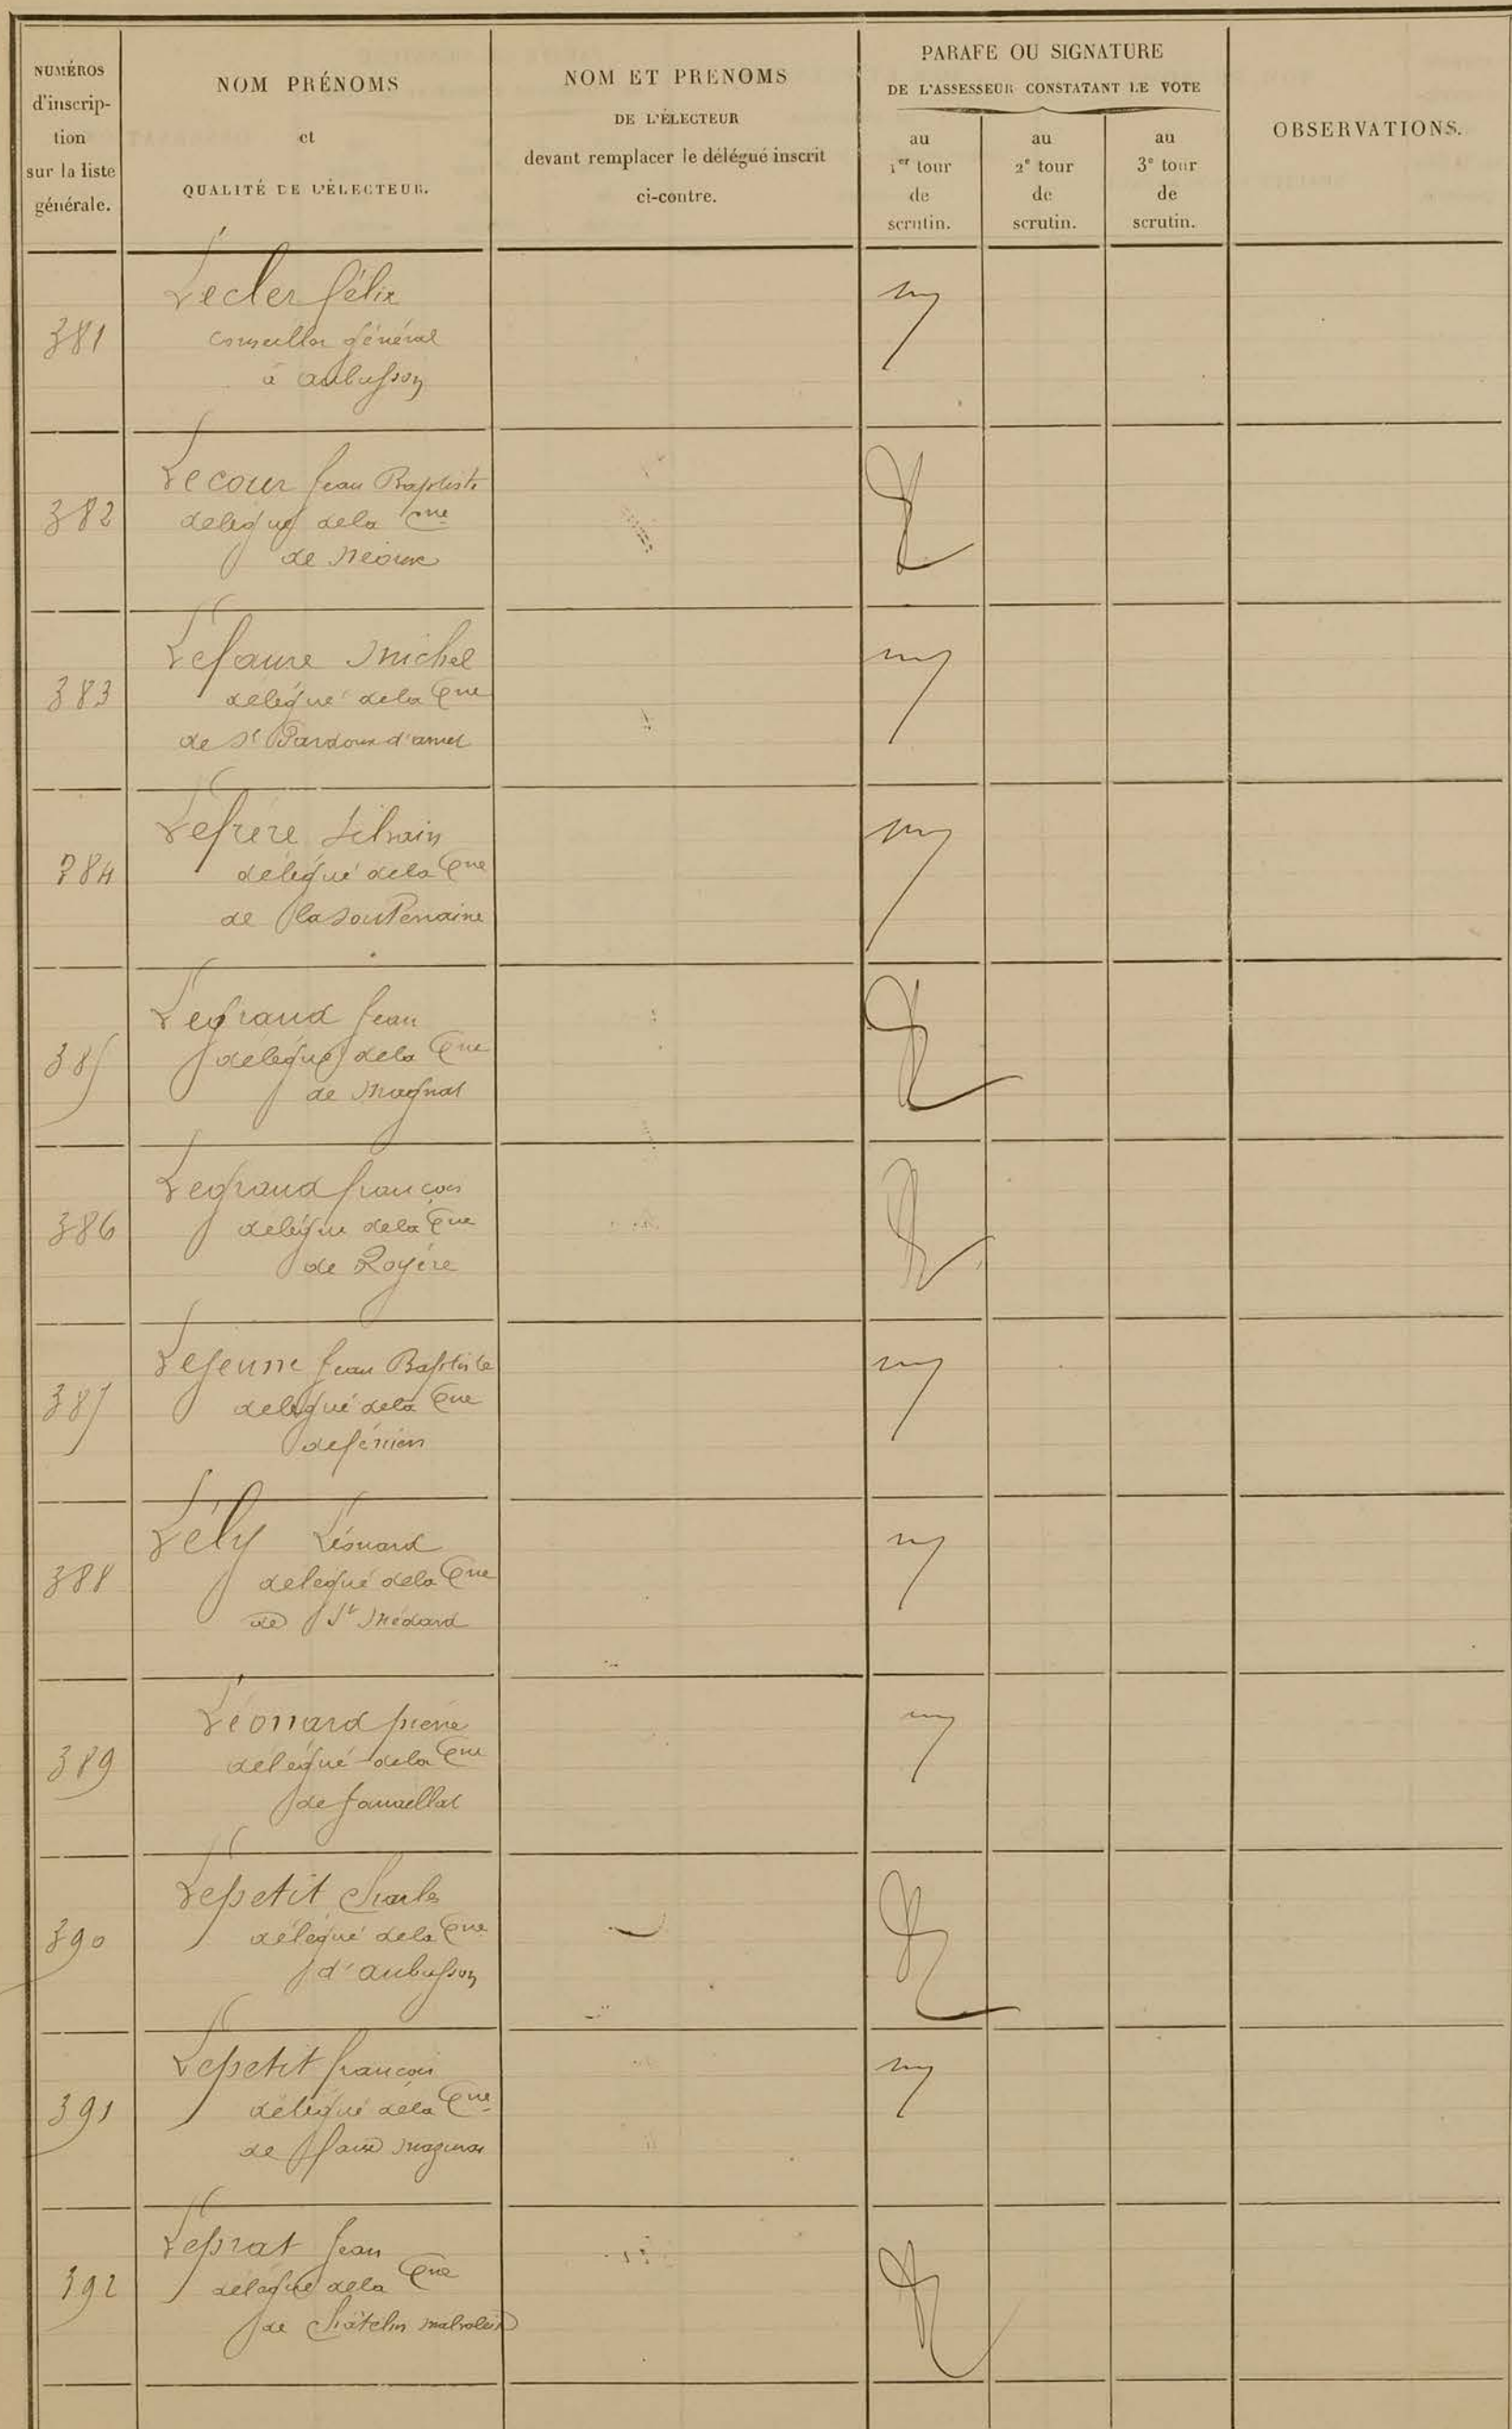 NUMÉROS
d'inscrip-
tion
sur la liste
générale.
NOM PRÉNOMS
et
QUALITÉ DE L'ÉLECTEUR.
NOM ET PRENOMS
DE L'ÉLECTEUR
devant remplacer le délégué inscrit
ci-contre.
PARAFE OU SIGNATURE
DE L'ASSESSEUR CONSTATANT LE VOTE
au
1er tour
de
scrutin.
au
2e tour
de
scrutin.
au
3e tour
de
scrutin.
OBSERVATIONS.
381
Lecler félix
Conseiller général
à aubusson
382
Lecour Jean Baptiste
délégué de la Cne
de Néoux
383
Lefaure Michel
délégué de la Cne
de St Pardoux d'arnet
384
Lefrère Silvain
délégué de la Cne
de la Souterraine
385
Legrand Jean
délégué de la Cne
de Magnat
386
Legrand françois
délégué de la Cne
de Royère
387
Lejeune Jean Baptiste
délégué de la Cne
de féniers
388
Lély Léonard
délégué de la Cne
de St Médard
389
Léonard pierre
délégué de la Cne
de Jouillat
390
Lepetit Charles
délégué de la Cne
d'aubusson
391
Lepetit françois
délégué de la Cne
de faux Mazuras
392
Leprat Jean
délégué de la Cne
de Châtelus malvaleix